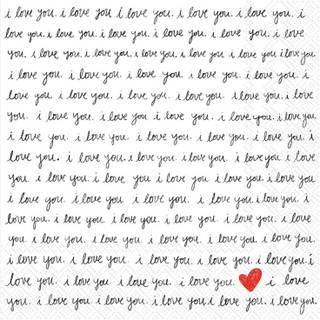 i love you. i love you i love you. i love you. i love you. i
love you. i love you. i love you. i love you. i love you. i love
you. i love you. i love you. i love you. i love you i love you
i love you. i love you. i love you. i love you. i love you.
i love you. i love you. i love you. i love you. i love you. i
love you. i love you. i love you. i love you. i love you. i love
you. i love you. i love you. i love you. i love you. i love you
i love you. i love you. i love you. i love you. i love you. i
love you. i love you. i love you. i love you. i love you i love
you. i love you. i love you. i love you. i love you. i love you.
i love you. i love you. i love you. i love you. i love you.
love you. i love you. i love you. i love you. i love you.
love you. i love you. i love you. i love you. i love you.
i love you. i love you. i love you. i love you. i love you. i
love you. i love you i love you. i love you. i love
you. i love you. i love you. i love you. i love you. i love you.